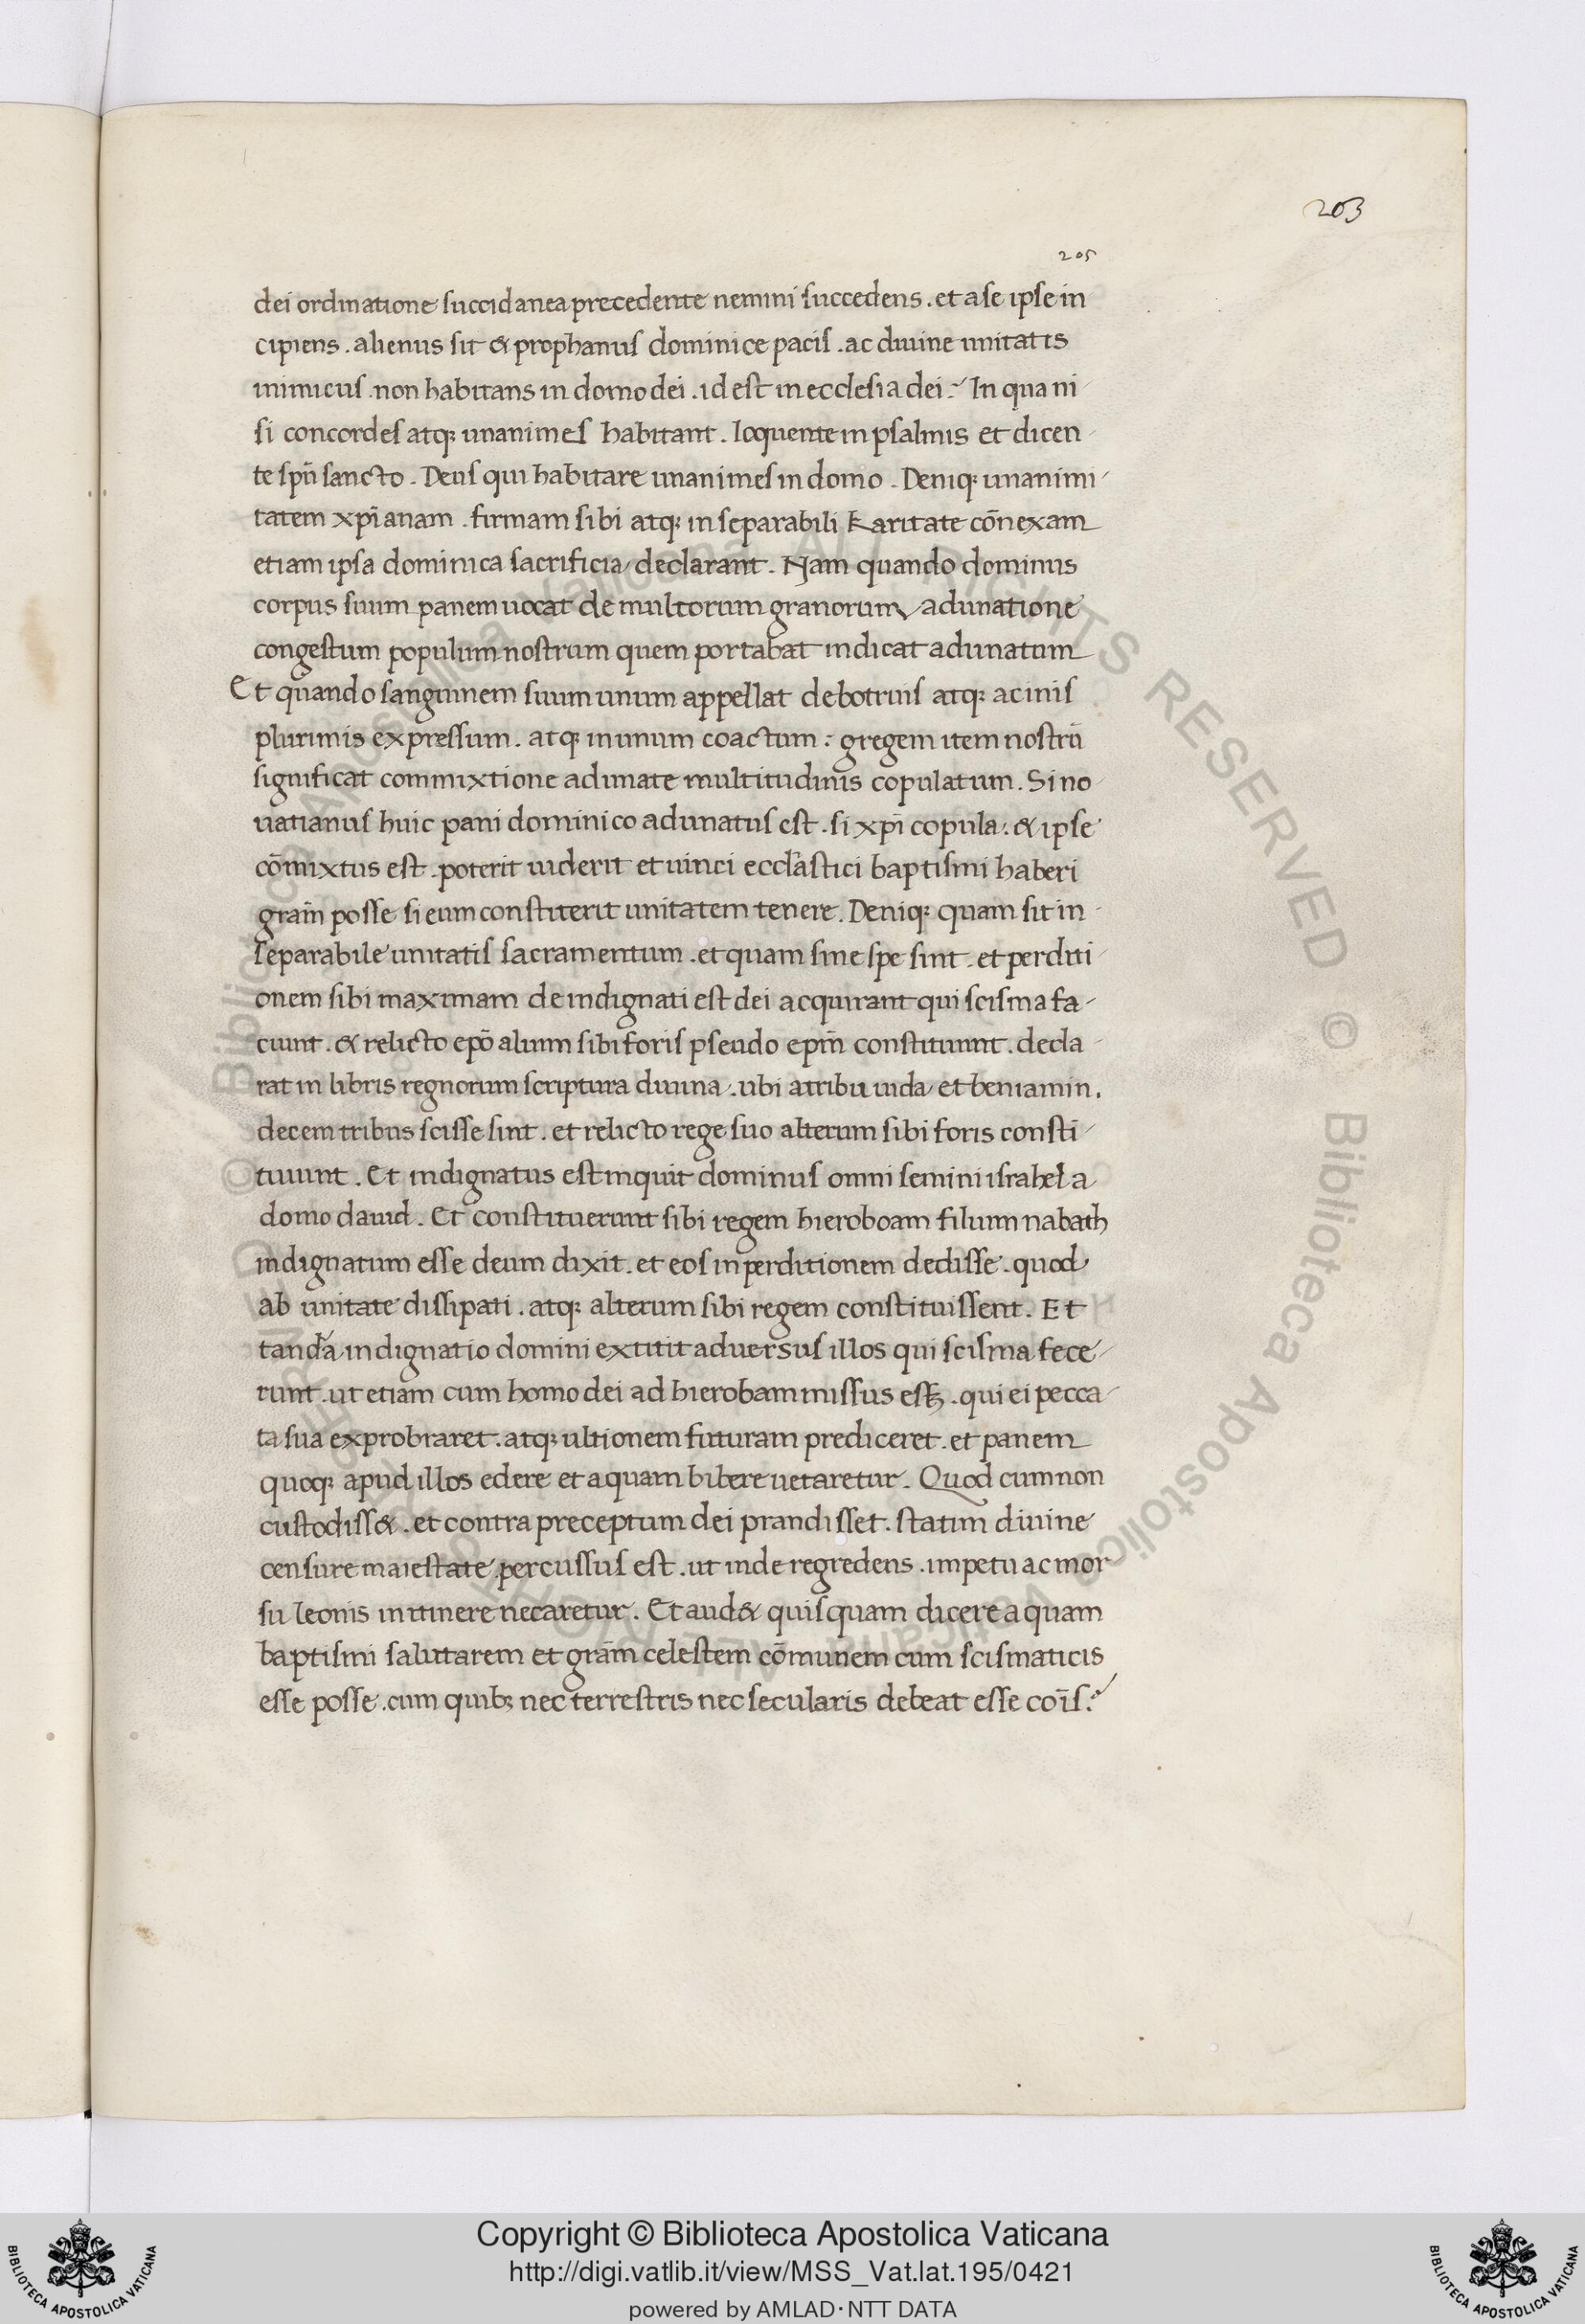 203
205
dei ordinatione succidanea precedente nemini succedens . et a se ipse in
cipiens . alienus sit & prophanus dominice pacis . ac diuine unitatis
inimicus . non habitans in domo dei . id est in ecclesia dei : In qua ni
si concordes atq; unanimes habitant . loquente in psalmis et dicen
te spū sancto . Deus qui habitare unanimes in domo . Deniq; unanimi
tatem xpīanam . firmam sibi atq; inseparabili Karitate cōnexam
etiam ipsa dominica sacrificia declarant . Nam quando dominus
corpus suum panem uocat de multorum granorum adunatione
congestum populum nostrum quem portabat indicat adunatum
Et quando sanguinem suum unum appellat de botruis atq; acinis
plurimis expressum . atq; in unum coactum : gregem item nostrū
significat commixtione adunate multitudinis copulatum . Si no
uatianus huic pani dominico adunatus est . si xpī copula . & ipse
cōmixtus est . poterit uiderit et uinci eccl'astici baptismi haberi
grām posse si eum constiterit unitatem tenere . Deniq; quam sit in
separabile unitatis sacramentum . et quam sine spe sint . et perditi
onem sibi maximam de indignati est dei acquirant qui scisma fa
ciunt . & relicto epō alium sibi foris pseudo epm̄ constituunt . decla
rat in libris regnorum scriptura diuina . ubi a tribu iuda et beniamin .
decem tribus scisse sint . et relicto rege suo alterum sibi foris consti
tuunt . Et indignatus est inquit dominus omni semini israhel a
domo dauid . Et constituerunt sibi regem hieroboam filium nabath
indignatum esse deum dixit . et eos in perditionem dedisse . quod
ab unitate dissipati . atq; alterum sibi regem constituissent . Et
tanda indignatio domini extitit aduersus illos qui scisma fece
runt . ut etiam cum homo dei ad hierobam missus ess& . qui ei pecca
ta sua exprobraret . atq; ultionem futuram prediceret . et panem
quoq; apud illos edere et aquam bibere uetaretur . Quod cum non
custodiss& . et contra preceptum dei prandisset . statim diuine
censure maiestate percussus est . ut inde regredens . impetu ac mor
su leonis in itinere necaretur . Et aud& quisquam dicere aquam
baptismi salutarem et grām celestem cōmunem cum scismaticis
esse posse . cum quib; nec terrestris nec secularis debeat esse coīs .
Copyright © Biblioteca Apostolica Vaticana
http://digi.vatlib.it/view/MSS_Vat.lat.195/0421
powered by AMLAD·NTT DATA
BIBLIOTECA APOSTOLICA VATICANA
BIBLIOTECA APOSTOLICA VATICANA